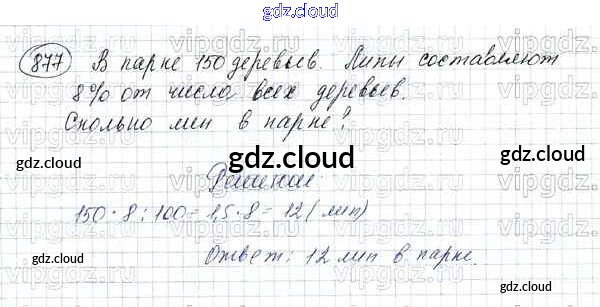 gdz.cloud
877 В парке 150 деревьев. Липы составляют
8% от числа всех деревьев.
Сколько лип в парке?
gdz.cloud gdz.cloud gdz.cloud
Решение:
150 · 8 : 100 = 1,5 · 8 = 12 (лип)
Ответ: 12 лип в парке.
gdz.cloud gdz.cloud